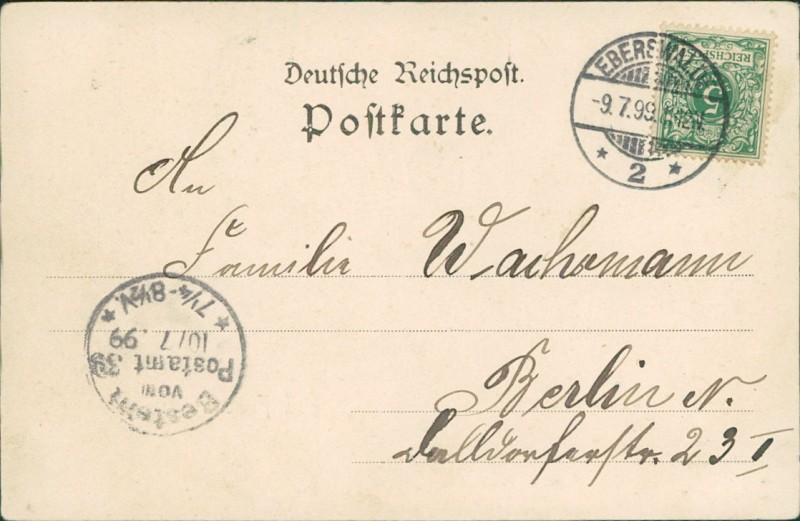 Deutsche Reichspost.
Postkarte.
REICHSPOST
5
EBERSWALDE
-9.7.99.
* 2 *
An
Familie Wachsmann
Berlin N.
Dalldorferstr. 23 I
Bestellt
vom
Postamt 39
10/7.99
* 7¼-8½V. *